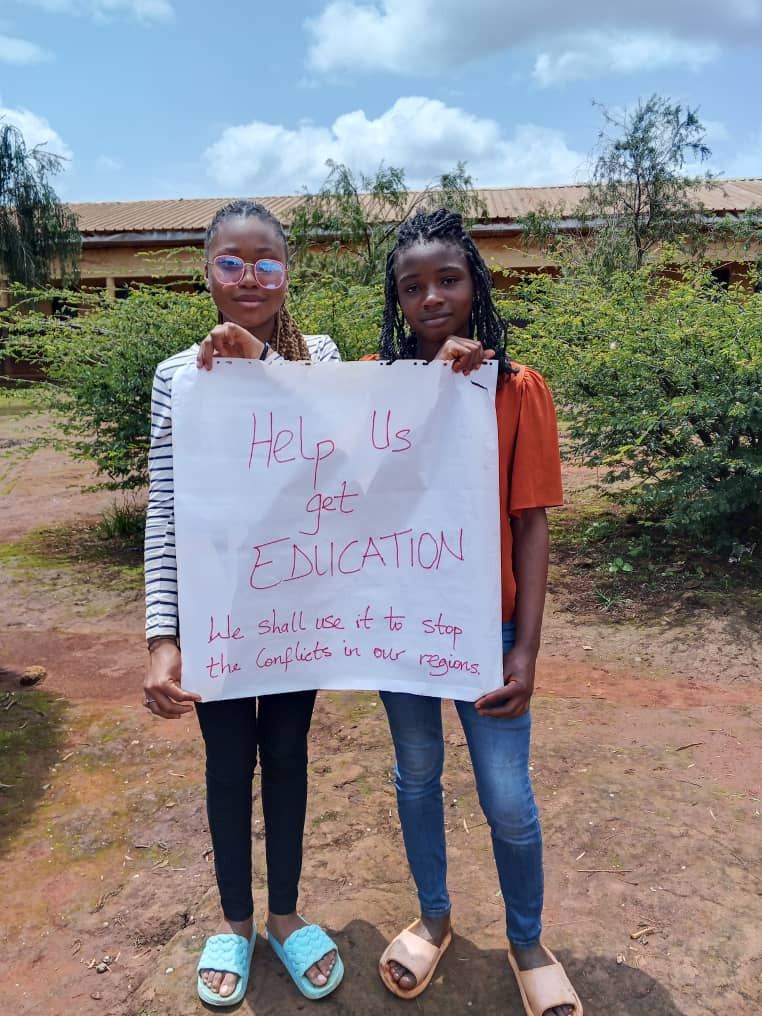 Help Us
get
EDUCATION
We shall use it to stop
the Conflicts in our regions.